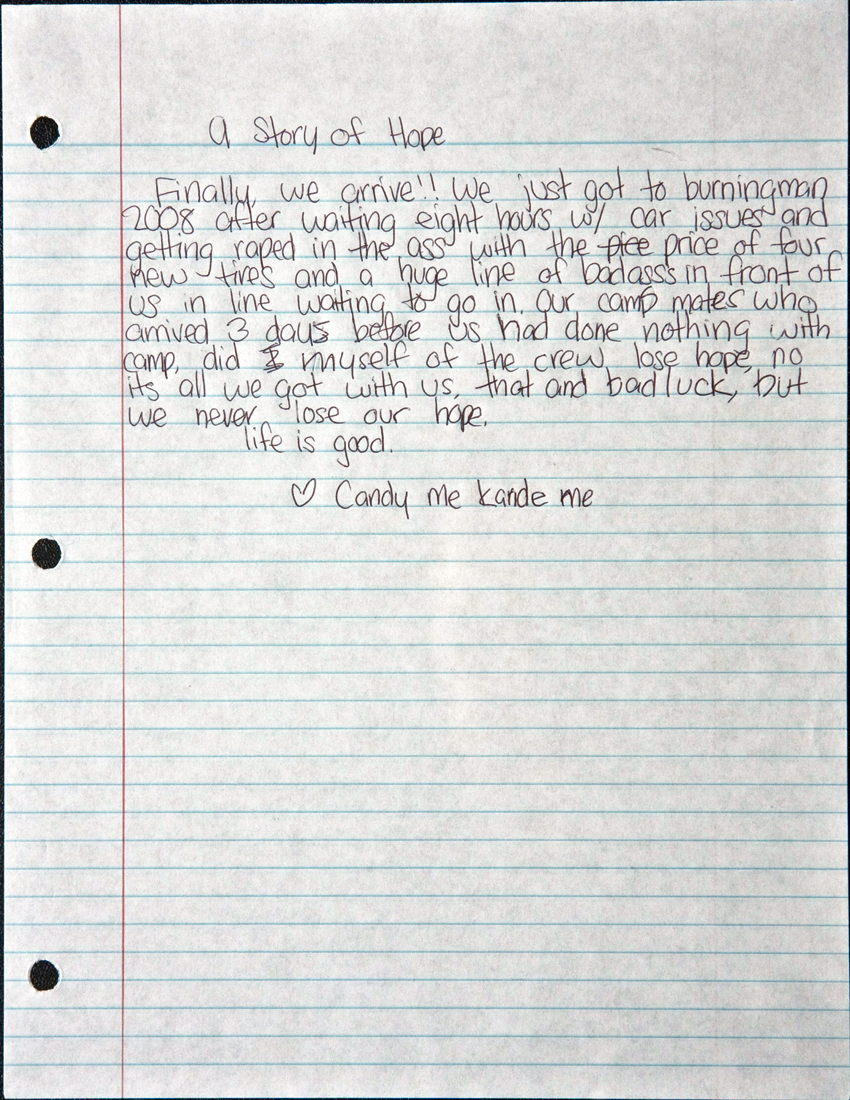 a Story of Hope
Finally, we arrive!! We just got to burningman
2008 after waiting eight hours w/ car issues and
getting raped in the ass with the price of four
new tires and a huge line of badasss in front of
us in line waiting to go in. Our camp mates who
arrived 3 days before us had done nothing with
camp, did I myself of the crew lose hope, no
its all we got with us, that and bad luck, but
we never lose our hope.
life is good.
♡ Candy me Kande me